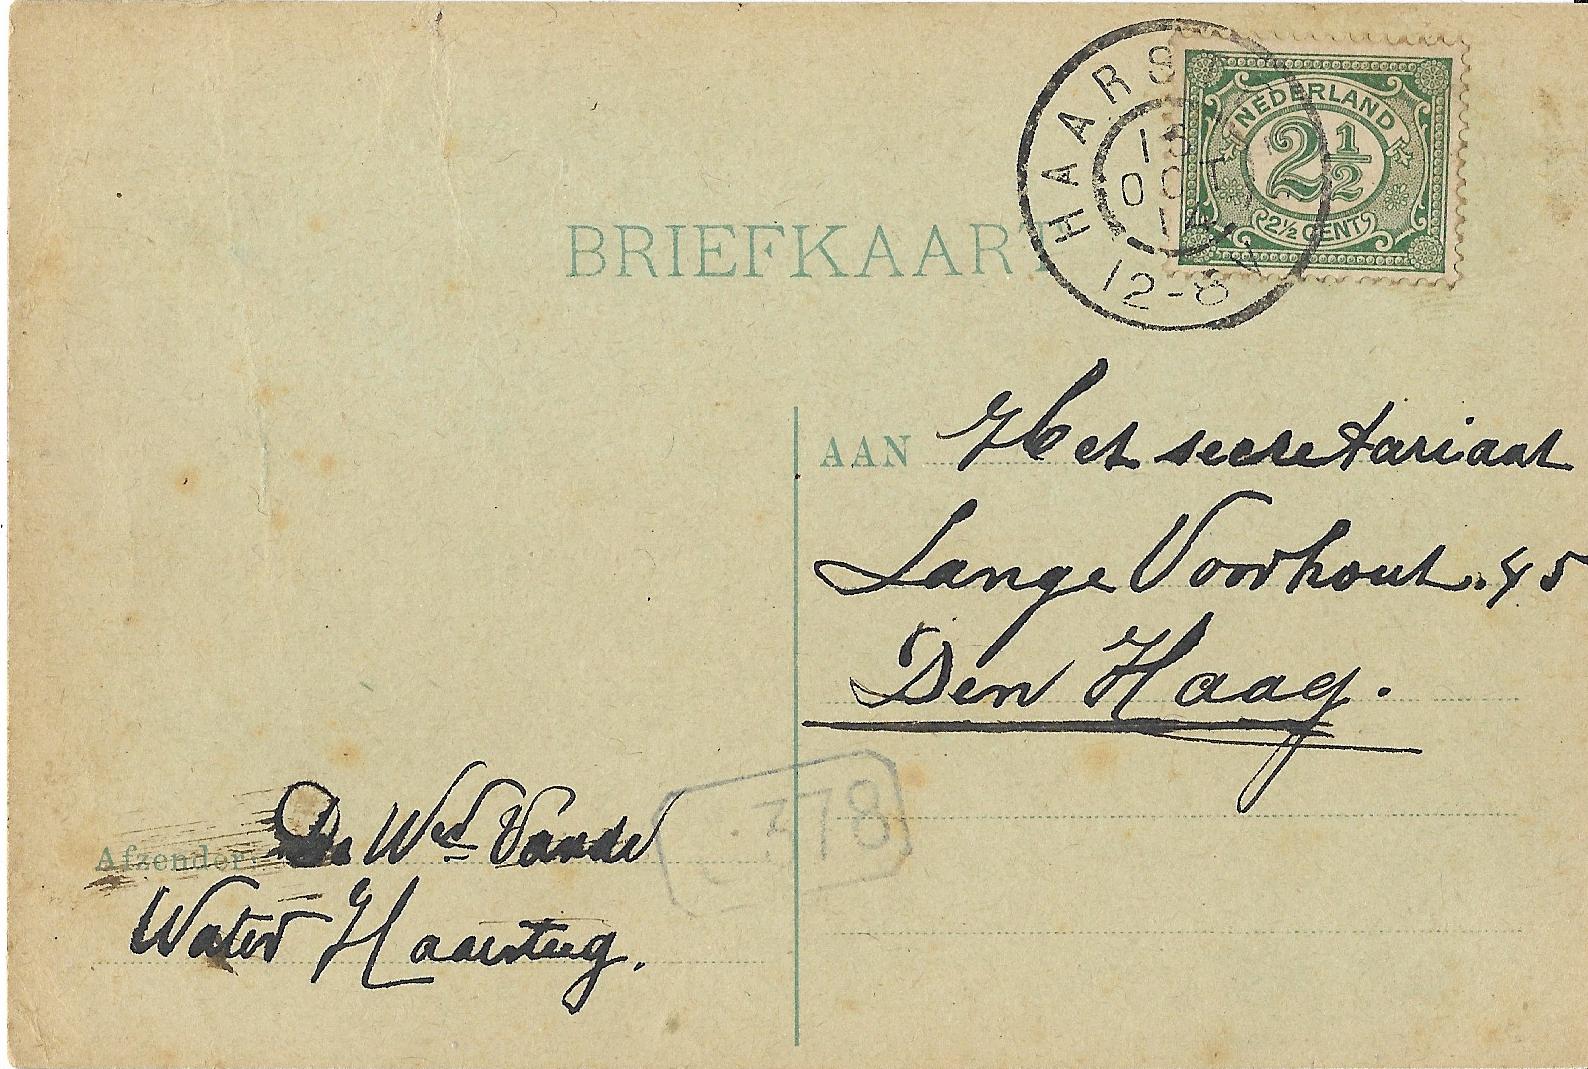 HAARS
13
OC
14
12-8 V
NEDERLAND
2 1/2
2 1/2 CENT
BRIEFKAART
AAN Het secretariaat
Lange Voorhout. 45
Den Haag.
378
Afzender: De Wed Vande
Water Haarsteeg.